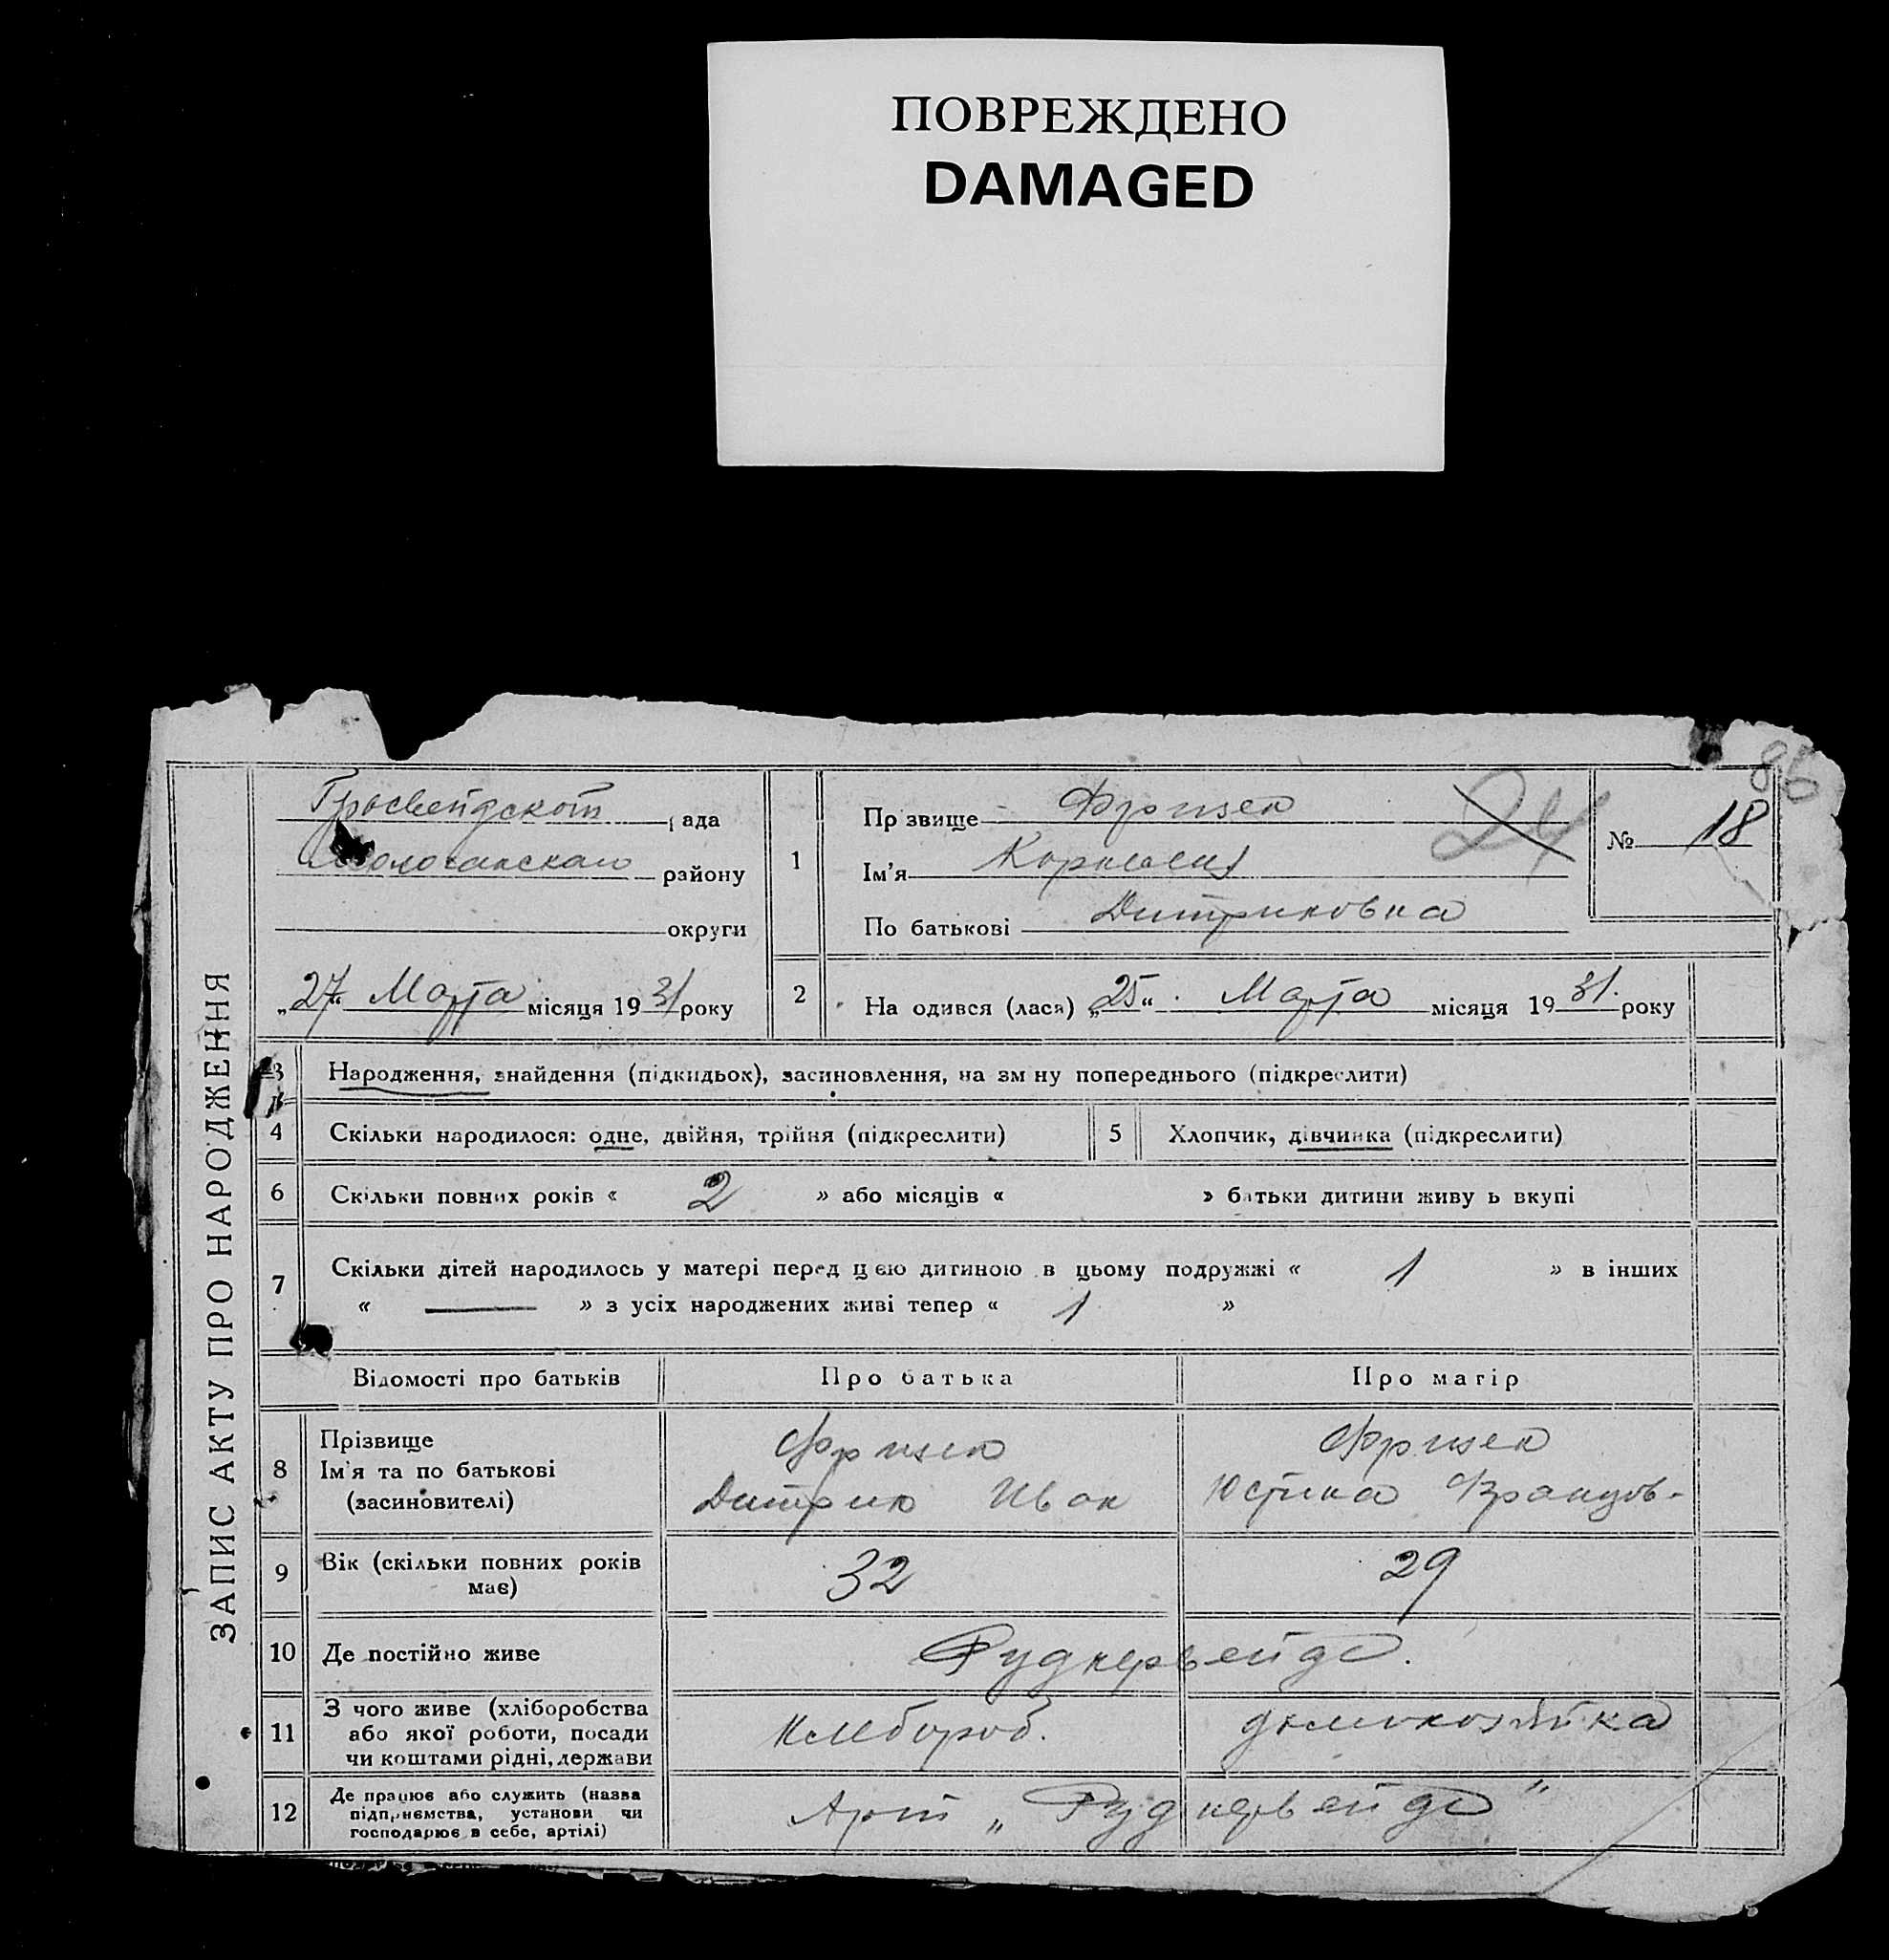 ПОВРЕЖДЕНО
DAMAGED
86
Гросвейдской рада
Молочанскаго району
округи
„27“ Марта місяця 1931 року
1
Пр звище Фризен
Ім'я Корнелия
По батькові Дитриковна
24
№ 18
2
На одився (лася) „25“ Марта місяця 1931. року
ЗАПИС АКТУ ПРО НАРОДЖЕННЯ
3 Народження, знайдення (підкидьок), засиновлення, на зм ну попереднього (підкреслити)
4 Скільки народилося: одне, двійня, трійня (підкреслити) 5 Хлопчик, дівчинка (підкреслити)
6 Скільки повних років « 2 » або місяців « » батьки дитини живу ь вкупі
7 Скільки дітей народилось у матері перед цією дитиною в цьому подружжі « 1 » в інших
« — » з усіх народжених живі тепер « 1 »
Відомості про батьків Про батька Про матір
8 Прізвище Фризен Фризен
Ім'я та по батькові Дитрик Иван Юстина Францов-
(засиновителі)
9 Вік (скільки повних років має) 32 29
10 Де постійно живе Руднервейде.
11 З чого живе (хліборобства або якої роботи, посади чи коштами рідні, держави Хлебороб. домохозяйка
12 Де працює або служить (назва підприємства, установи чи господарює в себе, артілі) Арт „Руднервейде“